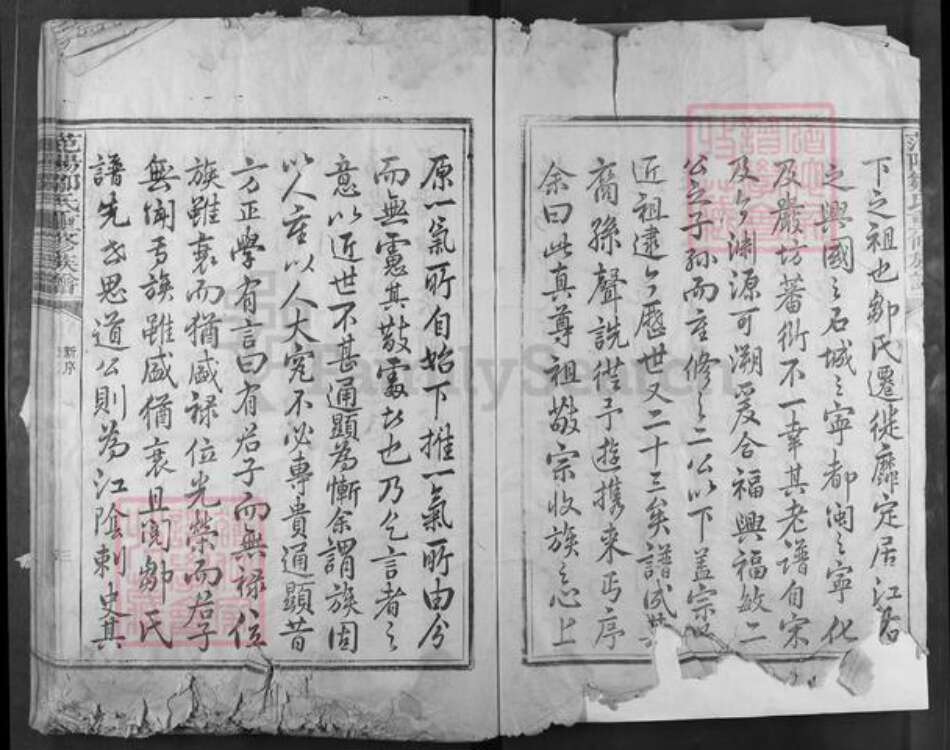 下之祖也鄒氏遷徙靡定居江右
之興國之石城之寧都閩之寧化
及嚴坊蕃衍不一幸其老譜自宋
及今淵源可溯爰合福興福敏二
公之子孫而重修之二公以下盖宗
近祖逮今歷世又二十三矣譜成其
裔孫聲詵從予遊携來丐序
余曰此真尊祖敬宗收族之心上
原一氣所自始下推一氣所由分
而無憲其散處者也乃乞言者之
意以近世不甚通顯為慚余謂族固
以人重以人大究不必專貴通顯昔
方正學有言曰有君子而無祿位
族雖衰而猶盛祿位光榮而君子
無聞焉族雖盛猶衰且閱鄒氏
譜先世思道公則為江陰刺史其
范陽鄒氏重修族譜
新序
FamilySearch